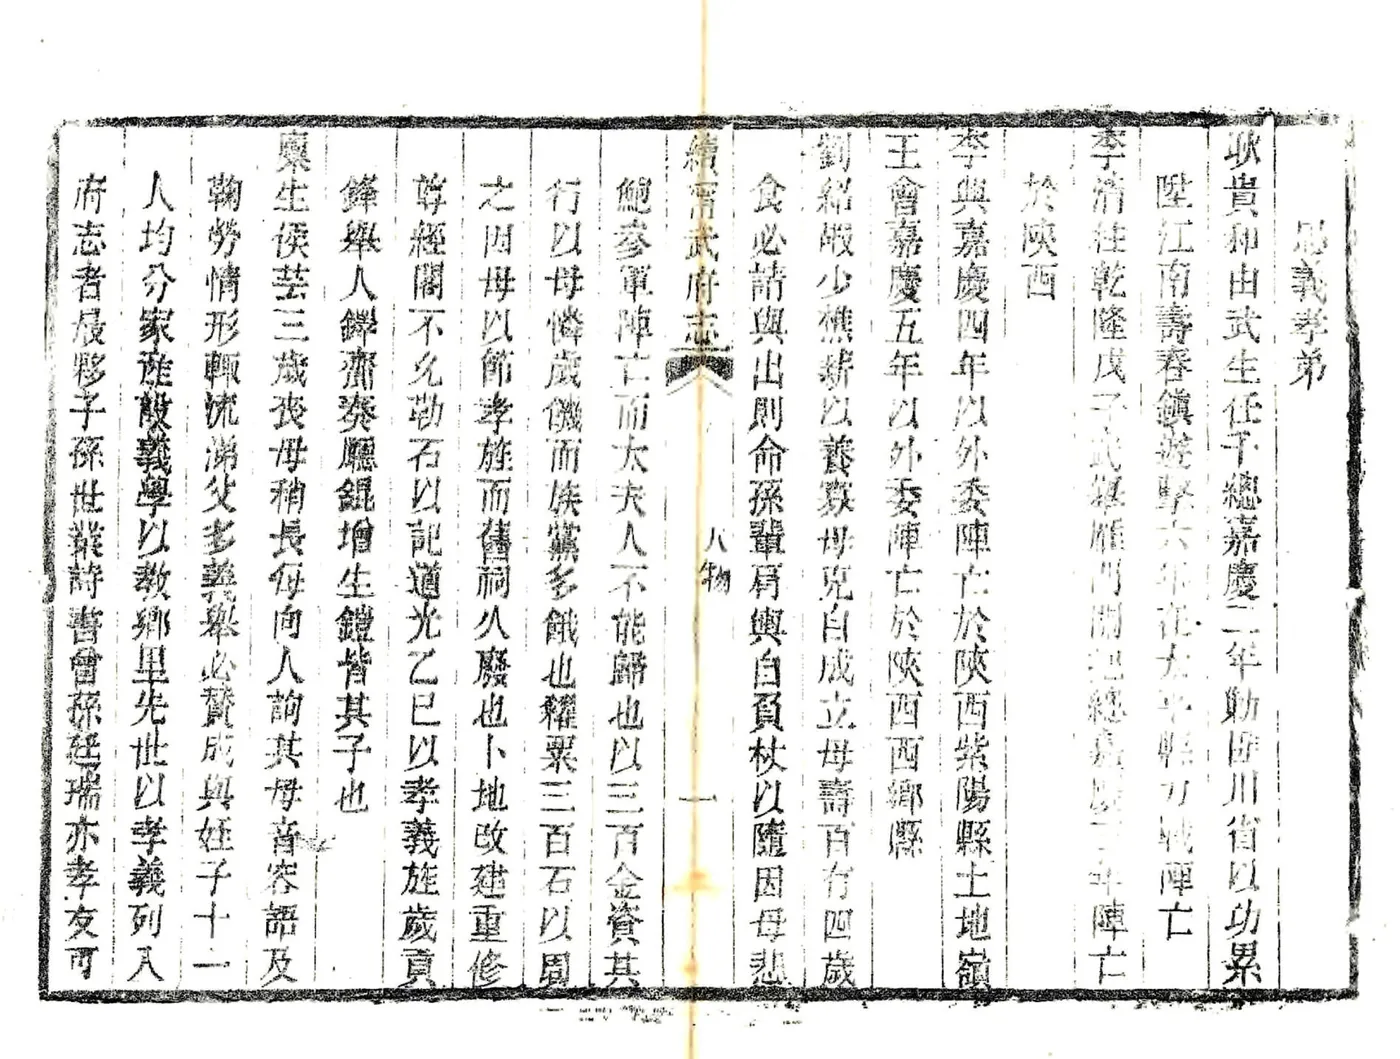 忠義孝弟
耿貴和由武生任千總嘉慶二年勦匪川省以功累
陞江南壽春鎮遊擊六年在太平輕刀戰陣亡
李清柱乾隆戊子武舉雁門關把總嘉慶二年陣亡
於陝西
李興嘉慶四年以外委陣亡於陝西紫陽縣土地嶺
王會嘉慶五年以外委陣亡於陝西西鄉縣
劉紹嘏少樵薪以養寡母克自成立母壽百有四歲
食必請與出則命孫輩肩輿自負杖以隨因母悲
續甯武府志
人物
一
鮑參軍陣亡而太夫人不能歸也以三百金資其
行以母憐歲饑而族黨多餓也糴粟三百石以周
之因母以節孝旌而舊祠久廢也卜地改建重修
尊經閣不允勒石以記道光乙巳以孝義旌歲貢
鋒舉人鐸齋奏廳錕增生鎧皆其子也
廩生侯芸三歲喪母稍長每向人詢其母音容語及
鞠勞情形輒流涕父多義舉必贊成與姪子十二
人均分家產設義學以教鄉里先世以孝義列入
府志者最夥子孫世業詩書曾孫廷瑞亦孝友可